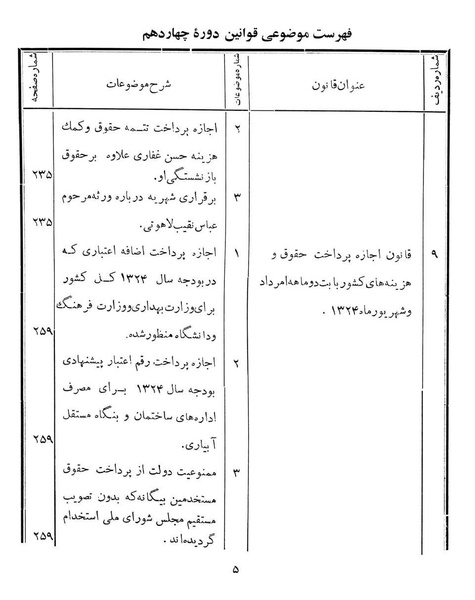 فهرست موضوعی قوانین دورهٔ چهاردهم
شمارهردیف
عنوان قانون
شمارهموضوعات
شرح موضوعات
شماره صفحه
۲
اجازه پرداخت تتمه حقوق وکمک
هزینه حسن غفاری علاوه برحقوق
بازنشستگی او.
۲۳۵
۳
برقراری شهریه درباره ورثه مرحوم
عباس نقیب لاهوتی.
۲۳۵
۹
قانون اجازه پرداخت حقوق و
هزینه های کشور بابت دوماهه امرداد
وشهریورماه ۱۳۲۴ .
۱
اجازه پرداخت اضافه اعتباری که
دربودجه سال ۱۳۲۴ کل کشور
برای وزارت بهداری ووزارت فرهنگ
ودانشگاه منظورشده.
۲۵۹
۲
اجازه پرداخت رقم اعتبار پیشنهادی
بودجه سال ۱۳۲۴ برای مصرف
اداره های ساختمان و بنگاه مستقل
آبیاری.
۲۵۹
۳
ممنوعیت دولت از پرداخت حقوق
مستخدمین بیگانه که بدون تصویب
مستقیم مجلس شورای ملی استخدام
گردیده اند.
۲۵۹
۵